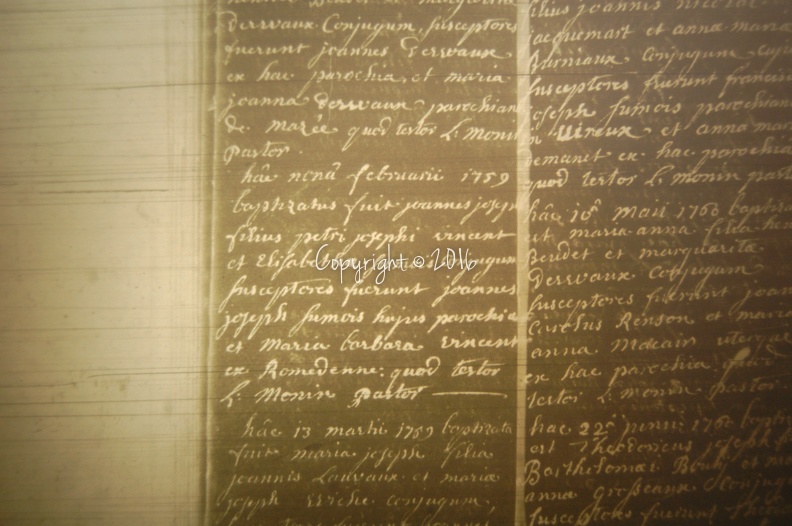 Derrvaux Conjugum, susceptores
fuerunt joannes Derrvaux
ex hac parochia, et maria
joanna derrvaux parochian
de mazée quod testor L. Monin
pastor.
hâc nonâ februarii 1759
baptizatus fuit joannes joseph
filius petri josephi vincent
et Elisabe
susceptores fuerunt joannes
joseph sumois hujus parochiæ
et maria barbara vincent
ex Romedenne quod testor
L. Monin pastor
hâc 13 martii 1759 baptizata
fuit maria joseph filia
joannis Lauvaux et maria
joseph conjugum
filius joannis
jacquemart et anna maria
Burniaux Conjugum
susceptores fuerunt francis
joseph sumois parochian
Vireux et anna mari
demanet ex hac parochia
quod testor L. monin past
hâc 16â Maii 1760 baptiza
est maria anna filia hen
Beudet et marguarita
Derrvaux Conjugum
susceptores fuerunt joan
Carolus Renson et maria
anna uterque
ex hac parochia quod
testor L. monin pastor
hâc 22â junii 1760 baptiz
est Theodoricus joseph f
Barthelomæi
anna Grosseaux Conjug
susceptores fuerunt
Copyright © 2016